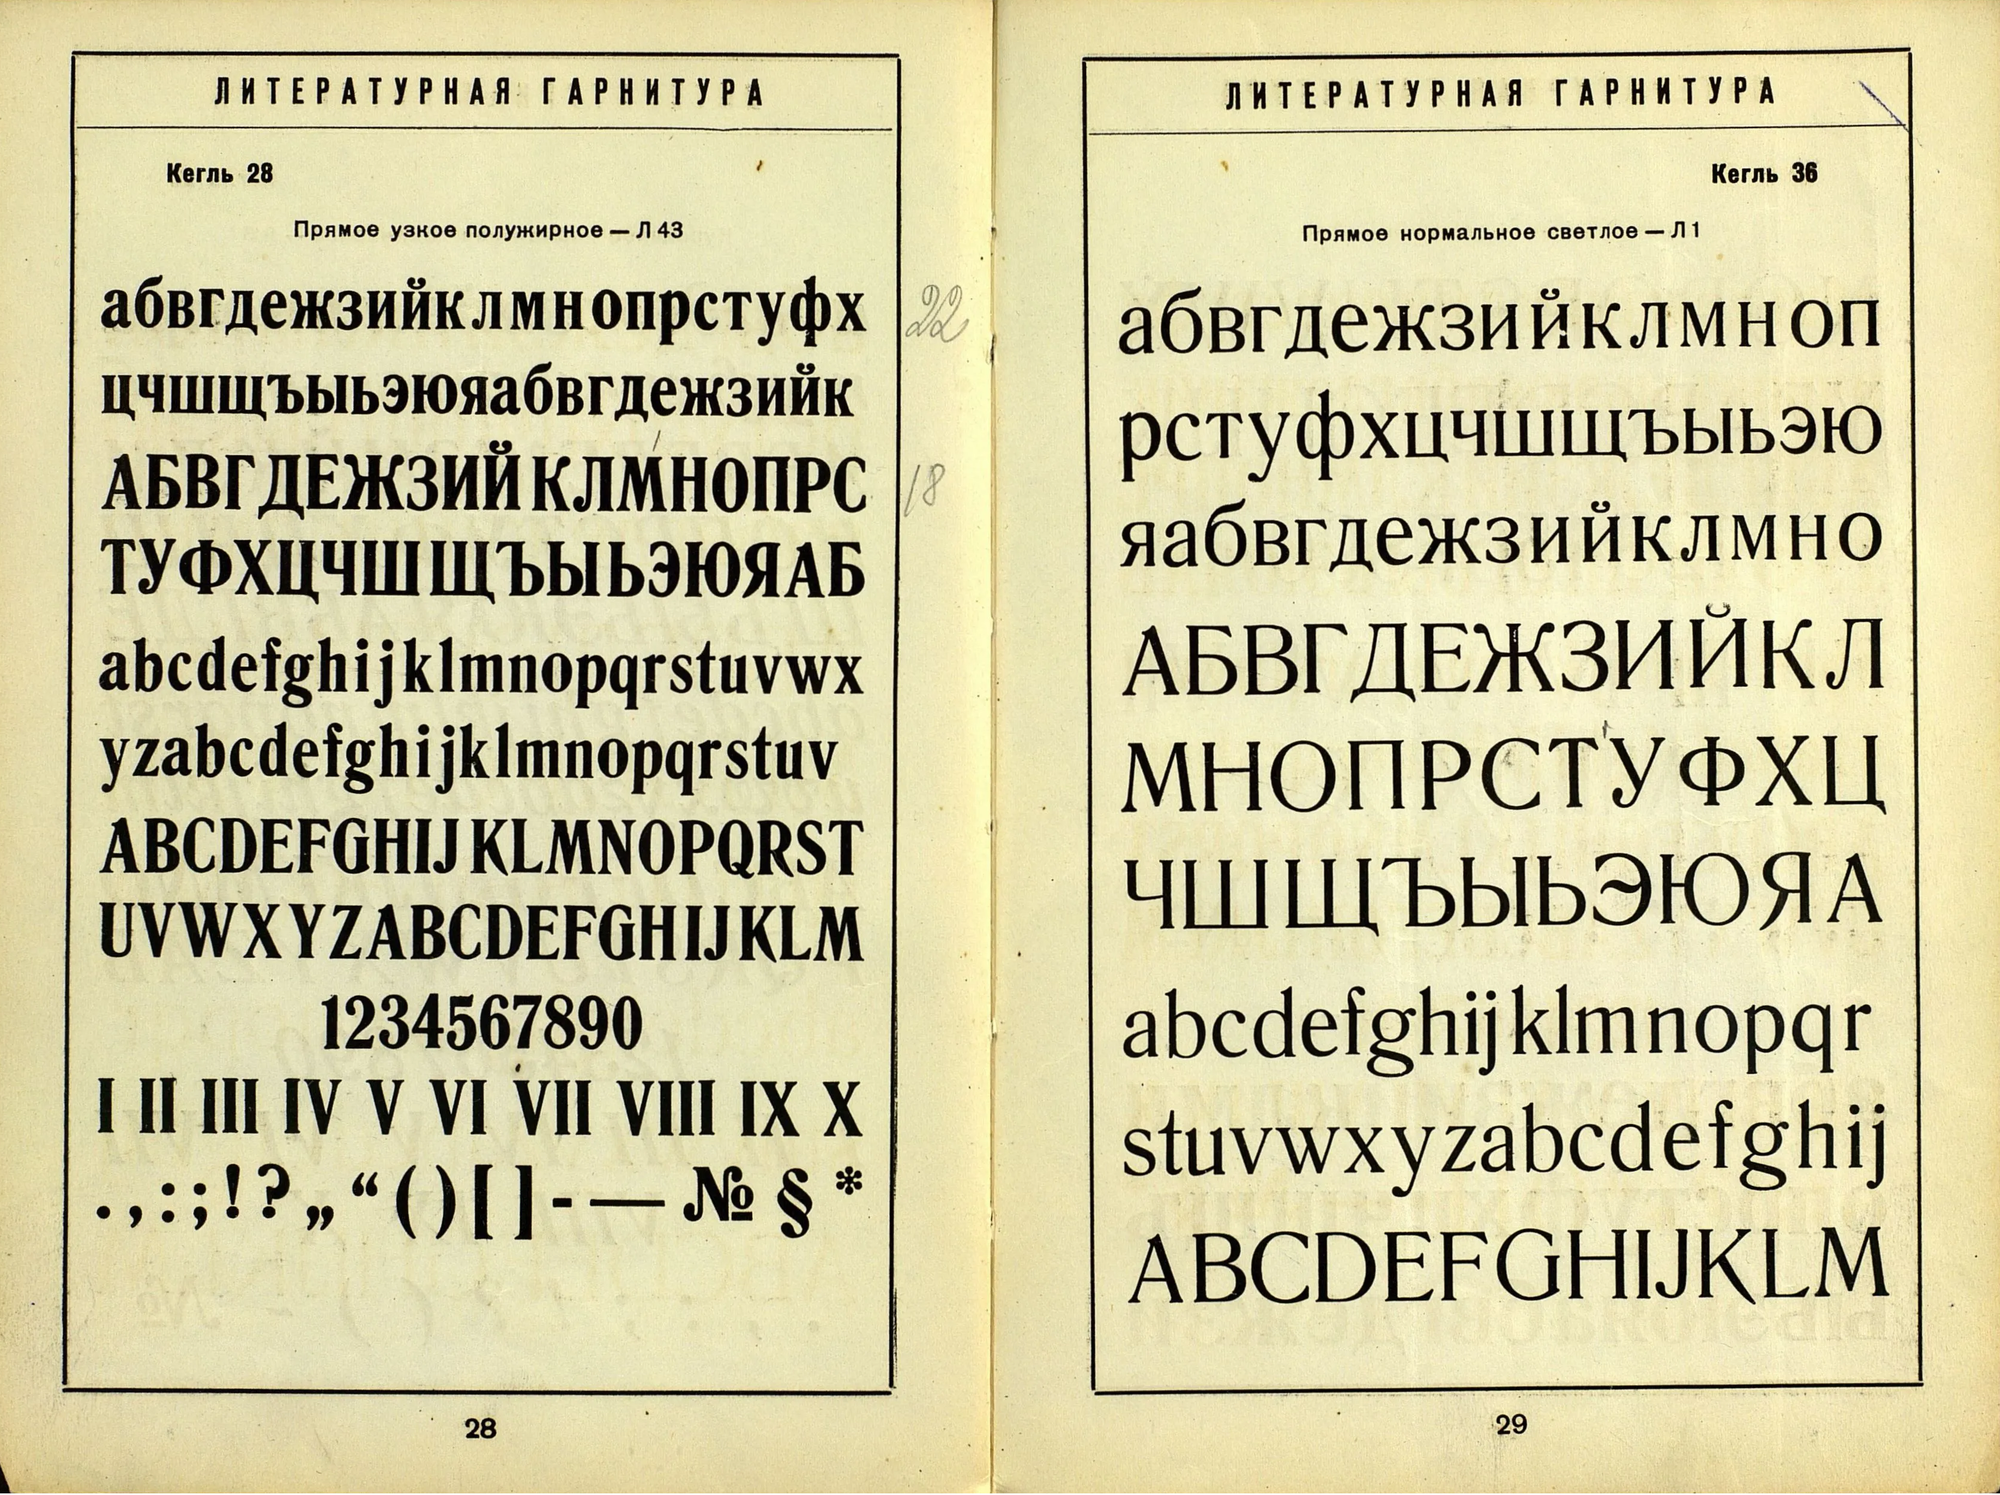 ЛИТЕРАТУРНАЯ ГАРНИТУРА
Кегль 28
Прямое узкое полужирное — Л 43
абвгдежзийклмнопрстуфх
22
цчшщъыьэюяабвгдежзийк
АБВГДЕЖЗИЙКЛМНОПРС
18
ТУФХЦЧШЩЪЫЬЭЮЯАБ
abcdefghijklmnopqrstuvwx
yzabcdefghijklmnopqrstuv
ABCDEFGHIJKLMNOPQRST
UVWXYZABCDEFGHIJKLM
1234567890
I II III IV V VI VII VIII IX X
.,:;!?„“()[]-—№§*
28
ЛИТЕРАТУРНАЯ ГАРНИТУРА
Кегль 36
Прямое нормальное светлое — Л 1
абвгдежзийклмноп
рстуфхцчшщъыьэю
яабвгдежзийклмно
АБВГДЕЖЗИЙКЛ
МНОПРСТУФХЦ
ЧШЩЪЫЬЭЮЯА
abcdefghijklmnopqr
stuvwxyzabcdefghij
ABCDEFGHIJKLM
29